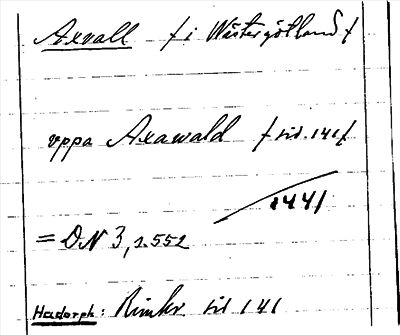 Axvall f i Västergötland f
uppa Axawald f sid. 141 f
1441
= DN 3, s. 552
Hadorph: Rimkr sid 141